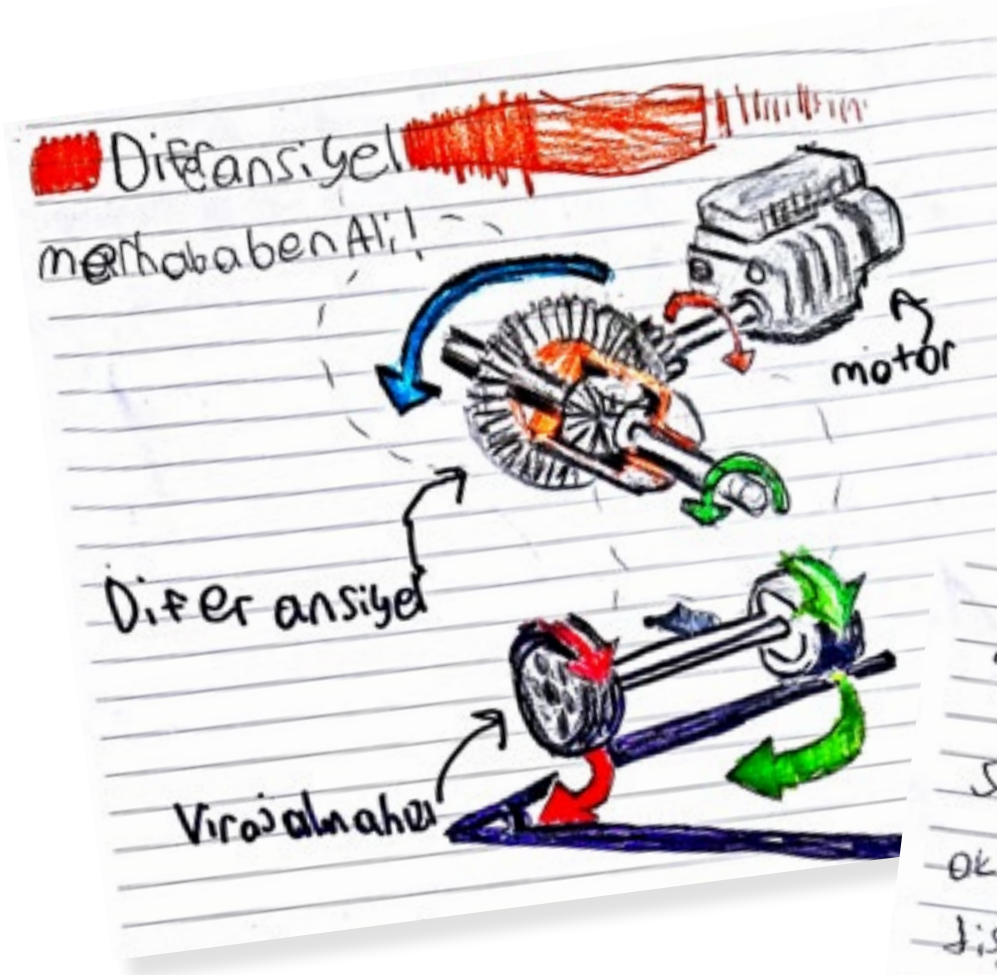 Diferansiyel
merhaba ben Ali!
motor
Diferansiyel
Viraj alma hızı
ok